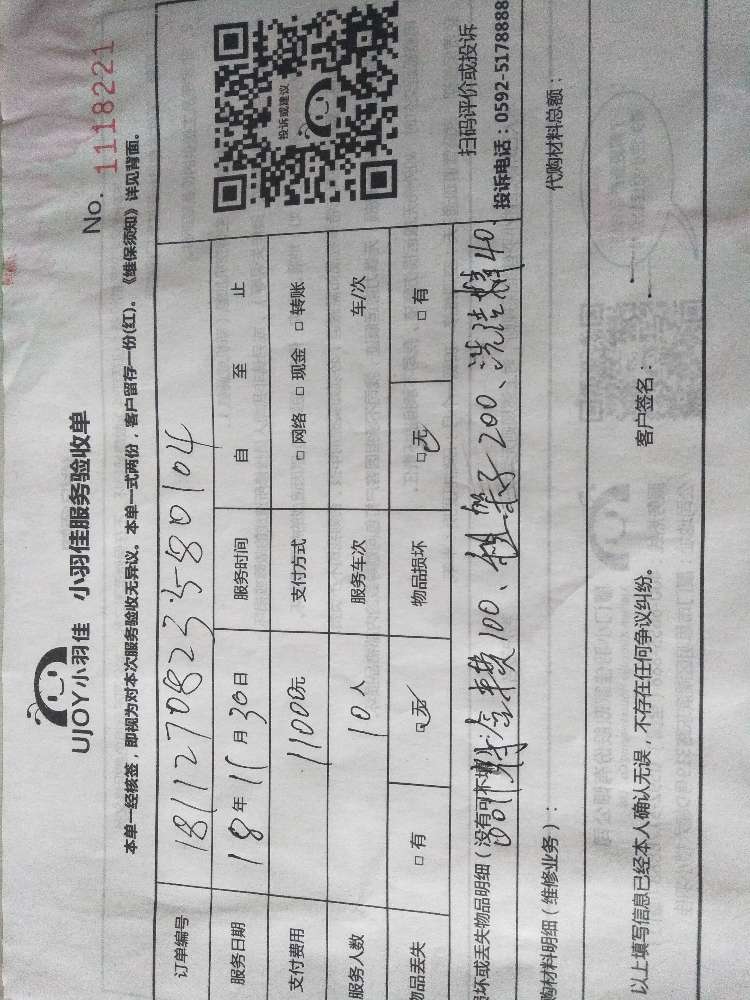 UJOY小羽佳 小羽佳服务验收单
No. 1118221
本单一经核签，即视为对本次服务验收无异议。本单一式两份，客户留存一份(红)。《维保须知》详见背面。
订单编号 18112708233580104
服务日期 18年11月30日 服务时间 自 至 止
支付费用 11000元 支付方式 □ 网络 □ 现金 □ 转账
服务人数 10人 服务车次 车/次
物品丢失 □ 有 □ 无 物品损坏 □ 无 □ 有
投诉或建议
扫码评价或投诉
投诉电话：0592-5178888
坏或丢失物品明细（没有可不填
100、架子200、洗洁精40
购材料明细（维修业务）： 代购材料总额：
以上填写信息已经本人确认无误，不存在任何争议纠纷。 客户签名：